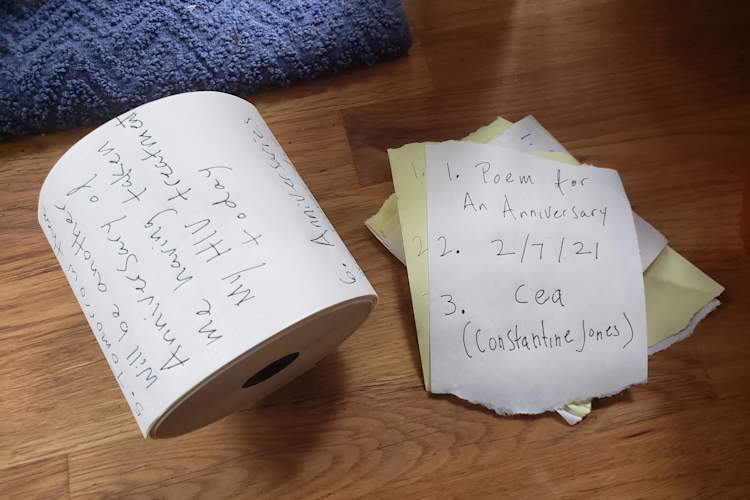 5. Tomorrow
will be another
Anniversary of
me having taken
My HIV treatment
today
6. Anniversaries
1.
2
1. Poem for
An Anniversary
2. 2/7/21
3. Cea
(Constantine Jones)